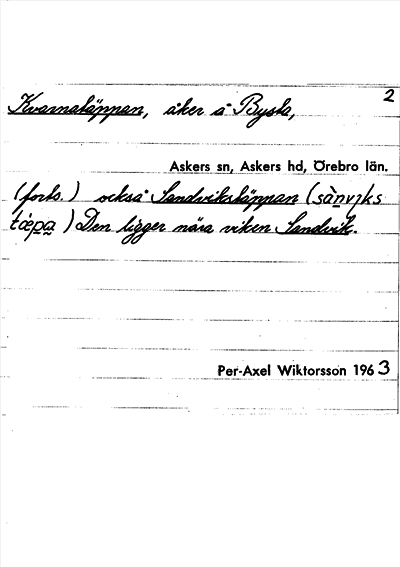 2
Kvarnatäppan, åker å Bysta,
Askers sn, Askers hd, Örebro län.
(forts.) också Sandvikstäppan (sànviks
tæ̀pa) Den ligger nära viken Sandvik.
Per-Axel Wiktorsson 1963